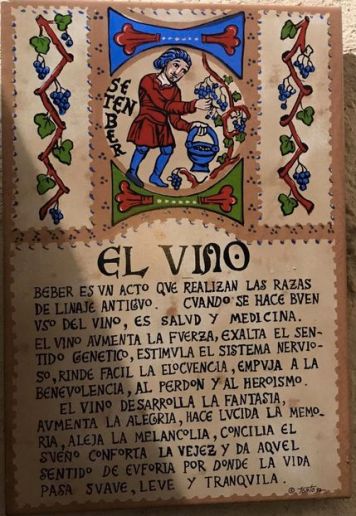 SETENBER
EL VINO
BEBER ES VN ACTO QVE REALIZAN LAS RAZAS
DE LINAJE ANTIGVO. CVANDO SE HACE BVEN
VSO DEL VINO, ES SALVD Y MEDICINA.
EL VINO AVMENTA LA FVERZA, EXALTA EL SEN-
TIDO GENETICO, ESTIMVLA EL SISTEMA NERVIO-
SO, RINDE FACIL LA ELOCVENCIA, EMPVJA A LA
BENEVOLENCIA, AL PERDON Y AL HEROISMO.
EL VINO DESARROLLA LA FANTASIA,
AVMENTA LA ALEGRIA, HACE LVCIDA LA MEMO-
RIA, ALEJA LA MELANCOLIA, CONCILIA EL
SVEÑO CONFORTA LA VEJEZ Y DA AQVEL
SENTIDO DE EVFORIA POR DONDE LA VIDA
PASA SVAVE, LEVE Y TRANQVILA.
©